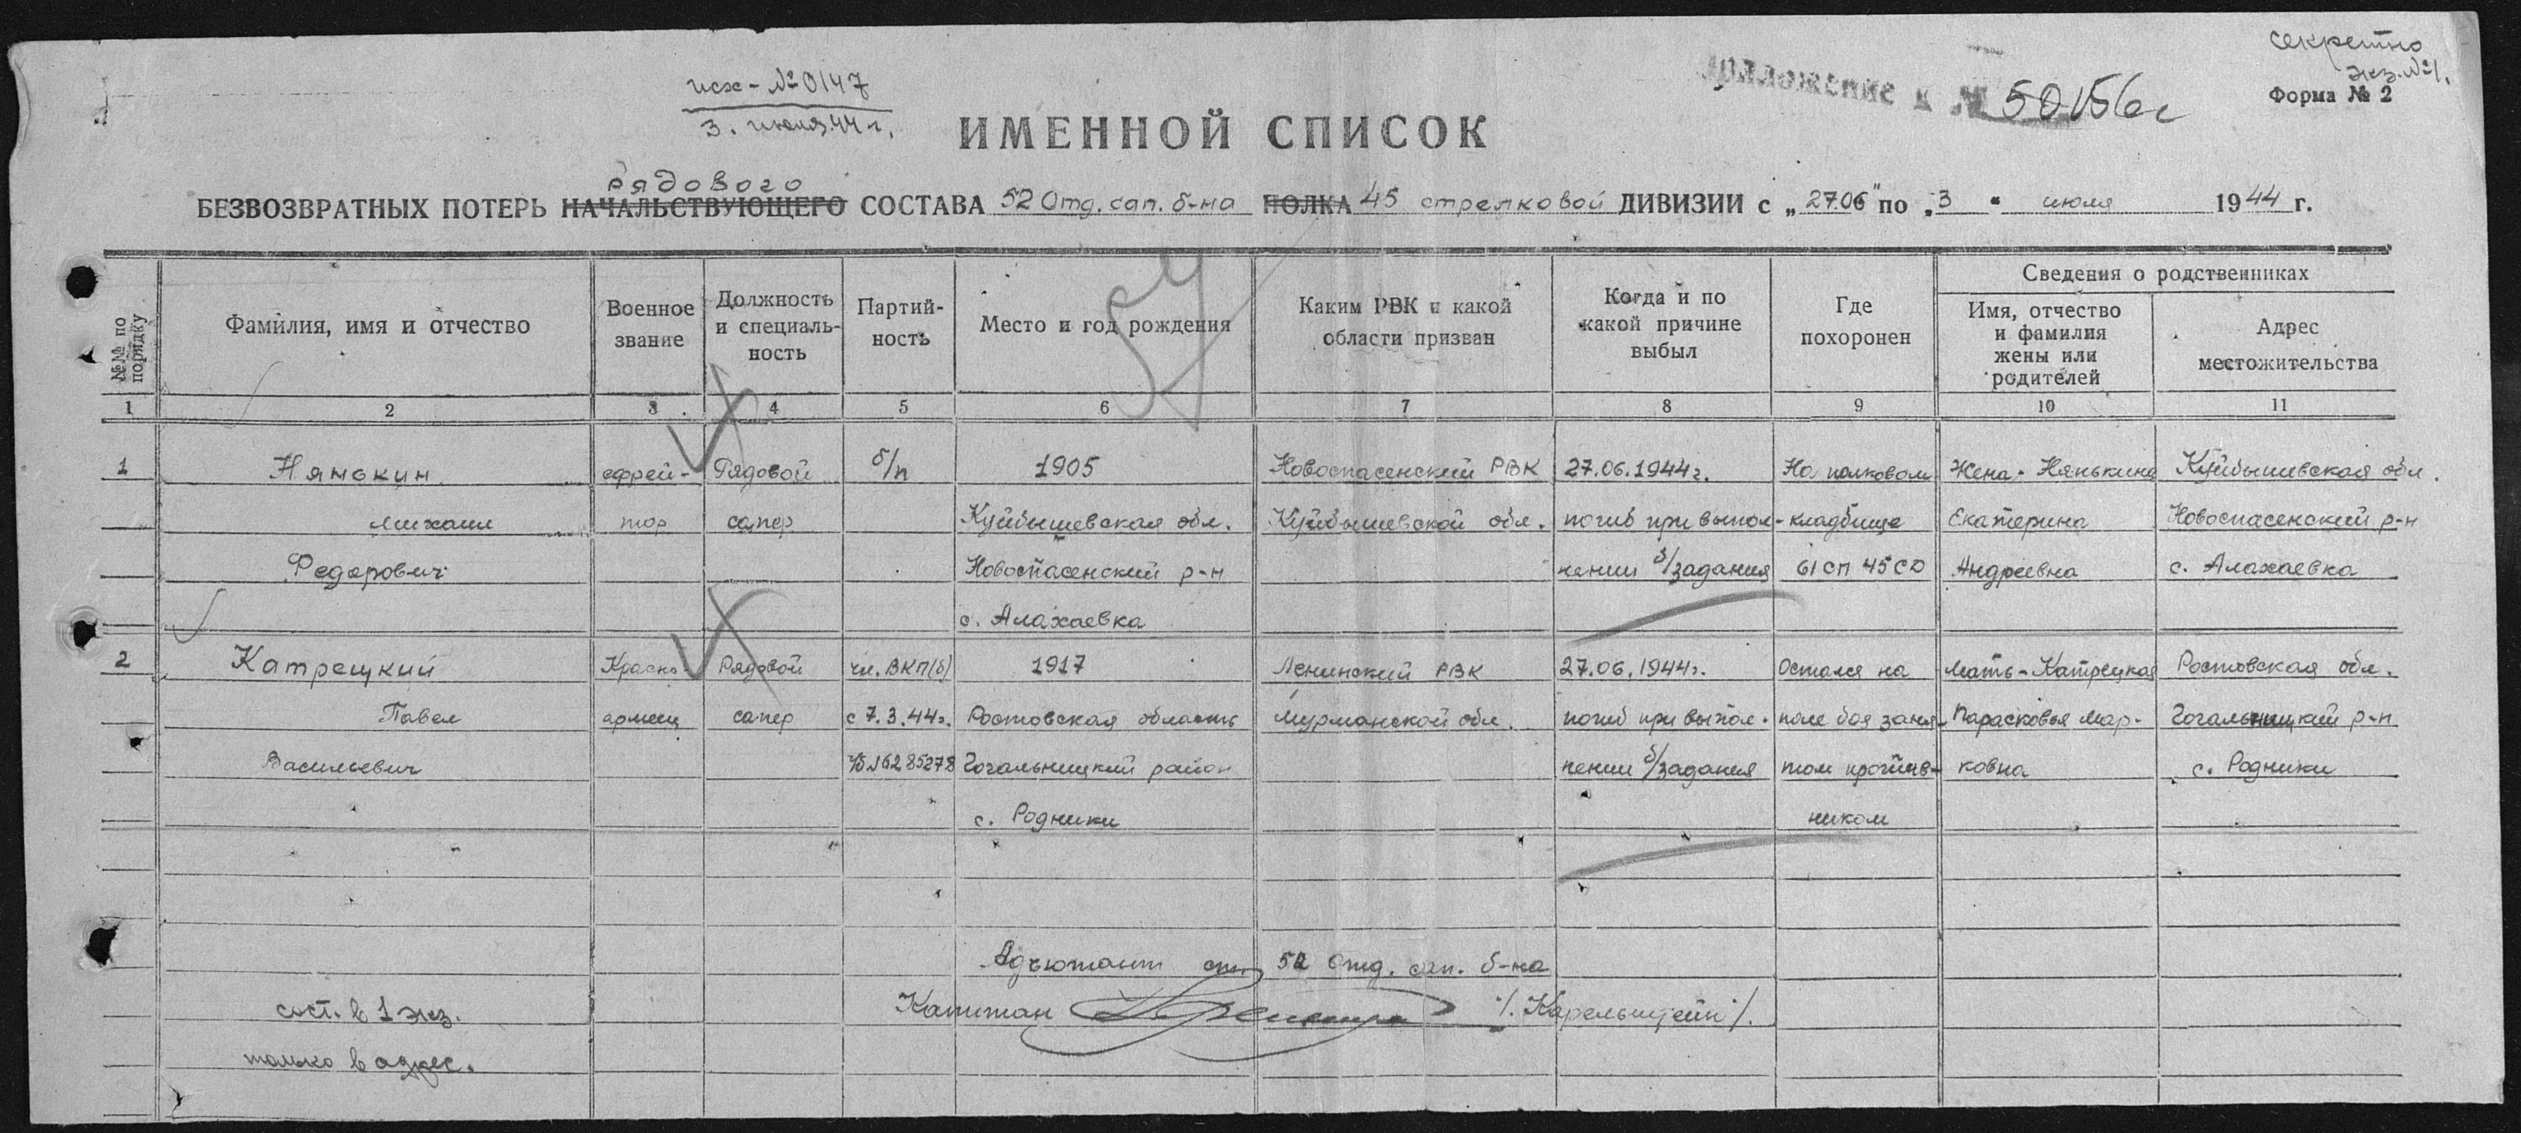 секретно
экз. №1.
исх-№0147
3. июля 44 г.
50156с
Форма № 2
ИМЕННОЙ СПИСОК
рядового
БЕЗВОЗВРАТНЫХ ПОТЕРЬ НАЧАЛЬСТВУЮЩЕГО СОСТАВА 52 Отд. сап. б-на ПОЛКА 45 стрелковой ДИВИЗИИ с „27.06" по „3" июля 1944 г.
№№ по порядку
Фамилия, имя и отчество
Военное звание
Должность и специаль-ность
Партий-ность
Место и год рождения
Каким РВК и какой области призван
Когда и по какой причине выбыл
Где похоронен
Сведения о родственниках
Имя, отчество и фамилия жены или родителей
Адрес местожительства
1 2 3 4 5 6 7 8 9 10 11
1 Нянькин ефрей- Рядовой б/п 1905 Новоспасенский РВК 27.06.1944г. На полковом Жена - Нянькина Куйбышевская обл.
Михаил тор сапер Куйбышевская обл. Куйбышевской обл. погиб при выпол- кладбище Екатерина Новоспасенский р-н
Федорович Новоспасенский р-н нении б/задания 61 СП 45 СД Андреевна с. Алахаевка
с. Алахаевка
2 Катрецкий Красно- Рядовой чл. ВКП(б) 1917 Ленинский РВК 27.06.1944г. Остался на Мать - Катрецкая Ростовская обл.
Павел армеец сапер с 7.3.44г. Ростовская область Мурманской обл. погиб при выпол- поле боя заня- Парасковья Мар- Гогальницкий р-н
Васильевич 6285278 Гогальницкий район нении б/задания том против- ковна с. Родники
с. Родники ником
Адъютант ст. 52 Отд. сап. б-на
Капитан /. Карельштейн /.
сост. в 1 экз.
только в адрес.